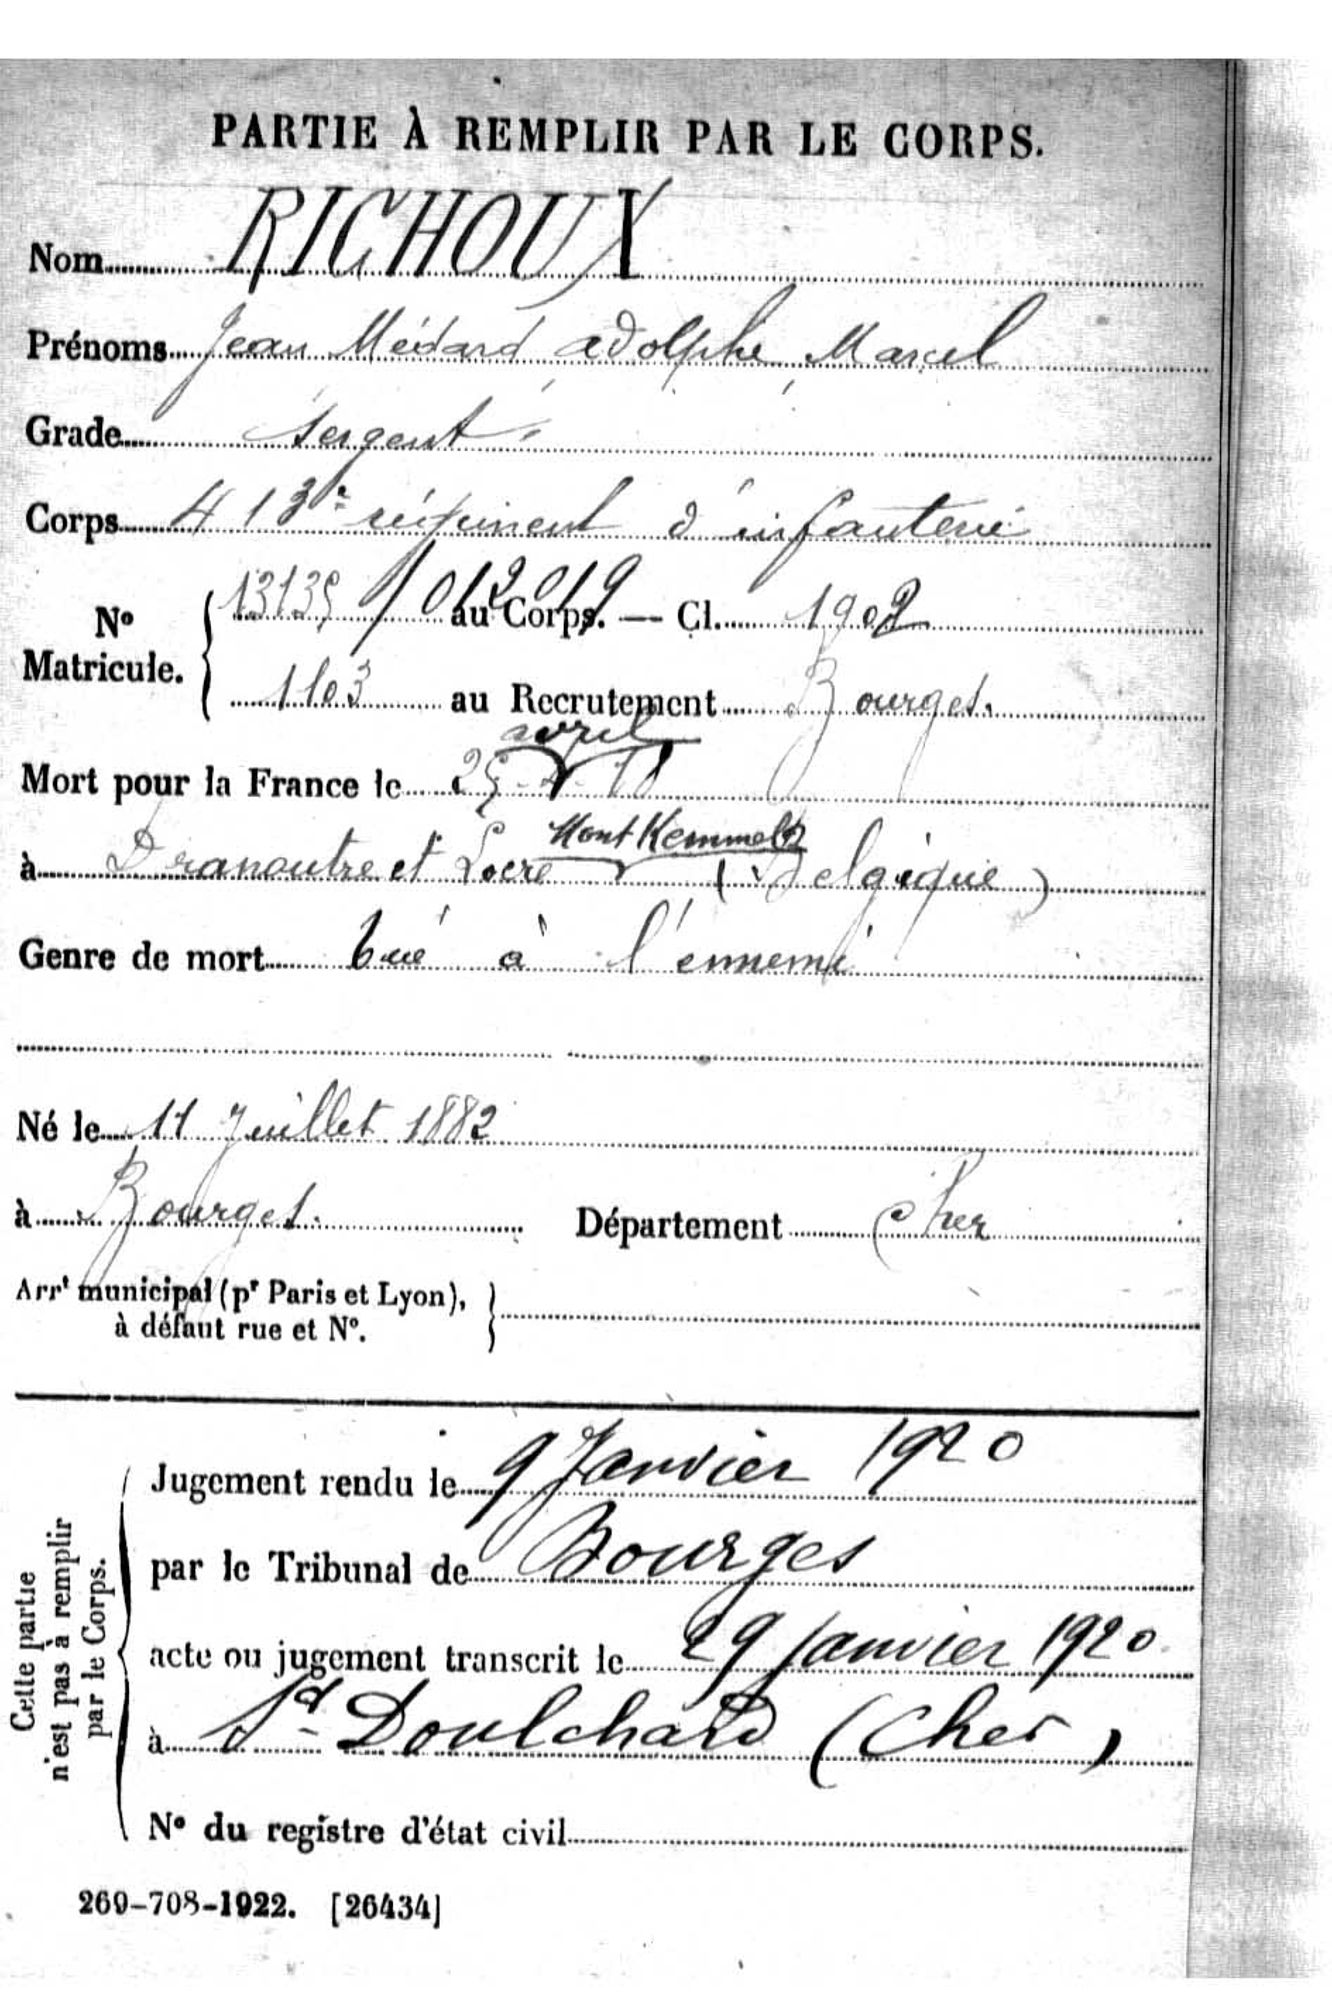 PARTIE À REMPLIR PAR LE CORPS.
Nom RICHOUX
Prénoms Jean Médard Adolphe Marcel
Grade Sergent
Corps 413e régiment d'infanterie
No Matricule. 13135 / 012019 au Corps. — Cl. 1902
1103 au Recrutement Bourges.
avril
Mort pour la France le 25-4-18
Mont Kemmel
à Dranoutre et Locre (Belgique)
Genre de mort tué à l'ennemi
Né le 11 Juillet 1882
à Bourges. Département Cher
Arrt municipal (pr Paris et Lyon),
à défaut rue et No.
Cette partie
n'est pas à remplir
par le Corps.
Jugement rendu le 9 Janvier 1920
par le Tribunal de Bourges
acte ou jugement transcrit le 29 Janvier 1920
à St Doulchard (Cher)
No du registre d'état civil
269-708-1922. [26434]